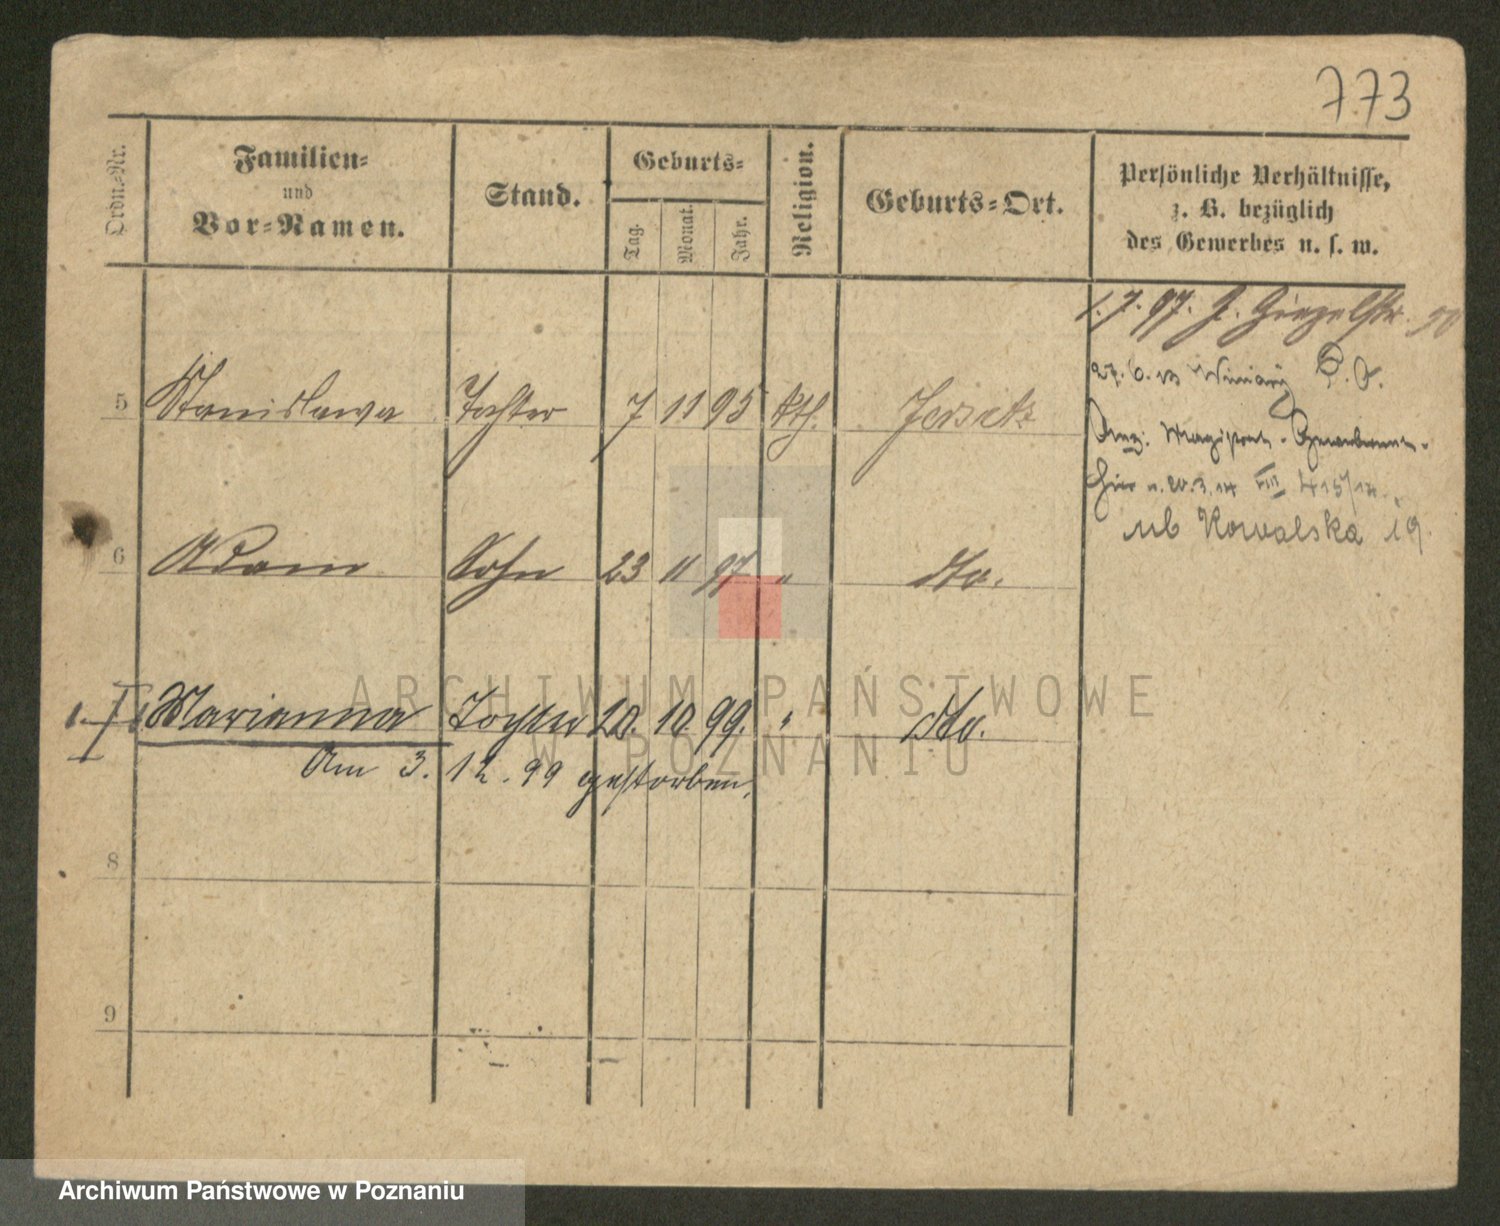 773
Ordn.-Nr.
Familien-
und
Vor-Namen.
Stand.
Geburts-
Tag.
Monat.
Jahr.
Religion.
Geburts-Ort.
Persönliche Verhältnisse,
z. B. bezüglich
des Gewerbes u. s. w.
1.7.97.
27.6.13 Winiary
5 Stanislawa Tochter 7 11 95 kth. Jersitz
hier v. 20.3.14 VIII 415/14
ul Kowalska 19.
6 Adam Sohn 23 11 97 " dto.
Marianna Tochter 20. 10. 99. " dto.
Am 3. 12. 99 gestorben.
8
9
ARCHIWUM PAŃSTWOWE
W POZNANIU
Archiwum Państwowe w Poznaniu